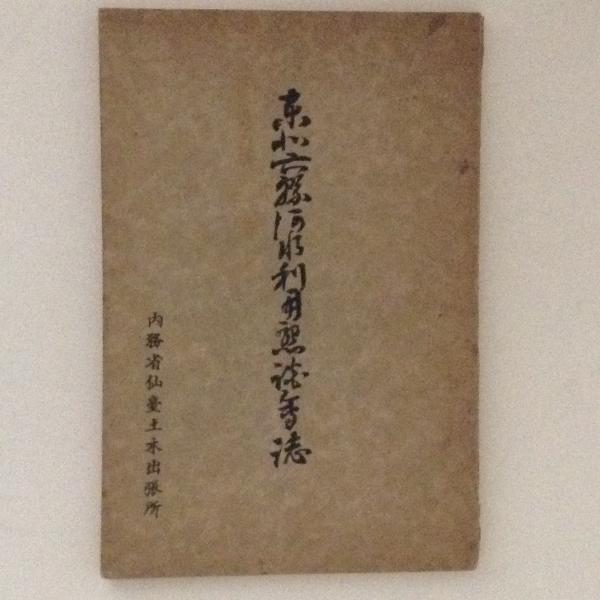 東北六縣河水利用懇談会誌
内務省仙臺土木出張所